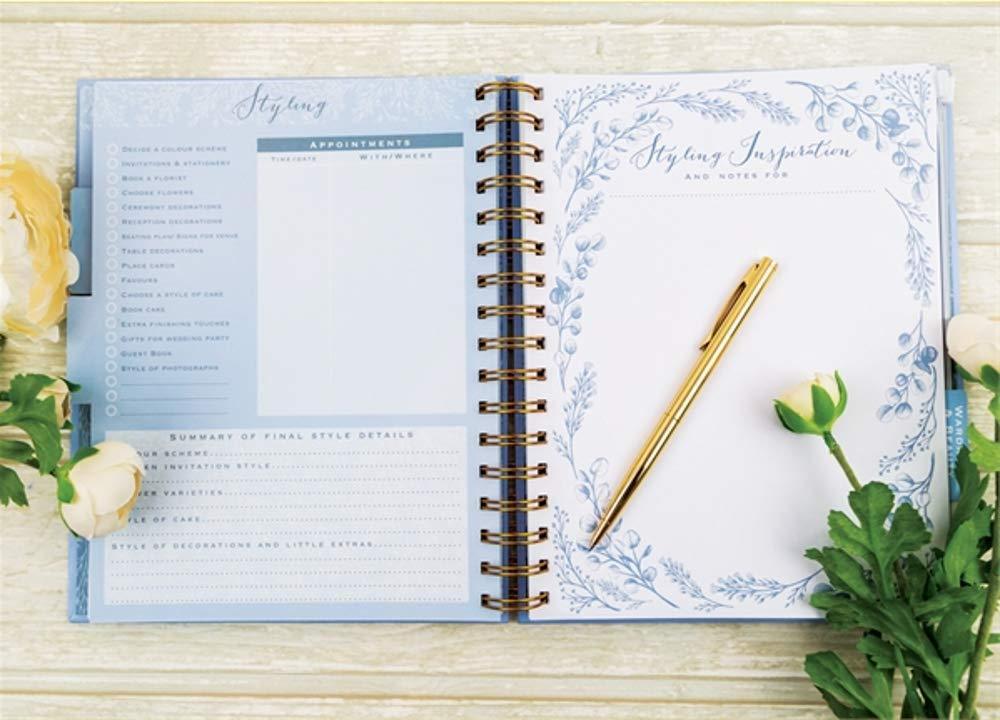 Styling
DECIDE A COLOUR SCHEME
INVITATIONS & STATIONERY
BOOK A FLORIST
CHOOSE FLOWERS
CEREMONY DECORATIONS
RECEPTION DECORATIONS
SEATING PLAN/ SIGNS FOR VENUE
TABLE DECORATIONS
PLACE CARDS
FAVOURS
CHOOSE A STYLE OF CAKE
BOOK CAKE
EXTRA FINISHING TOUCHES
GIFTS FOR WEDDING PARTY
GUEST BOOK
STYLE OF PHOTOGRAPHS
APPOINTMENTS
TIME/DATE WITH/WHERE
SUMMARY OF FINAL STYLE DETAILS
OUR SCHEME
EN INVITATION STYLE
ER VARIETIES
YLE OF CAKE
STYLE OF DECORATIONS AND LITTLE EXTRAS
Styling Inspiration
AND NOTES FOR